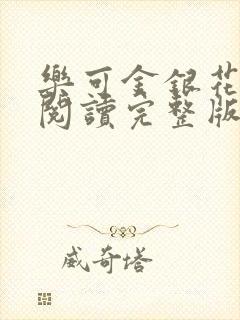 樂可金銀花
閱讀完整版
威奇塔